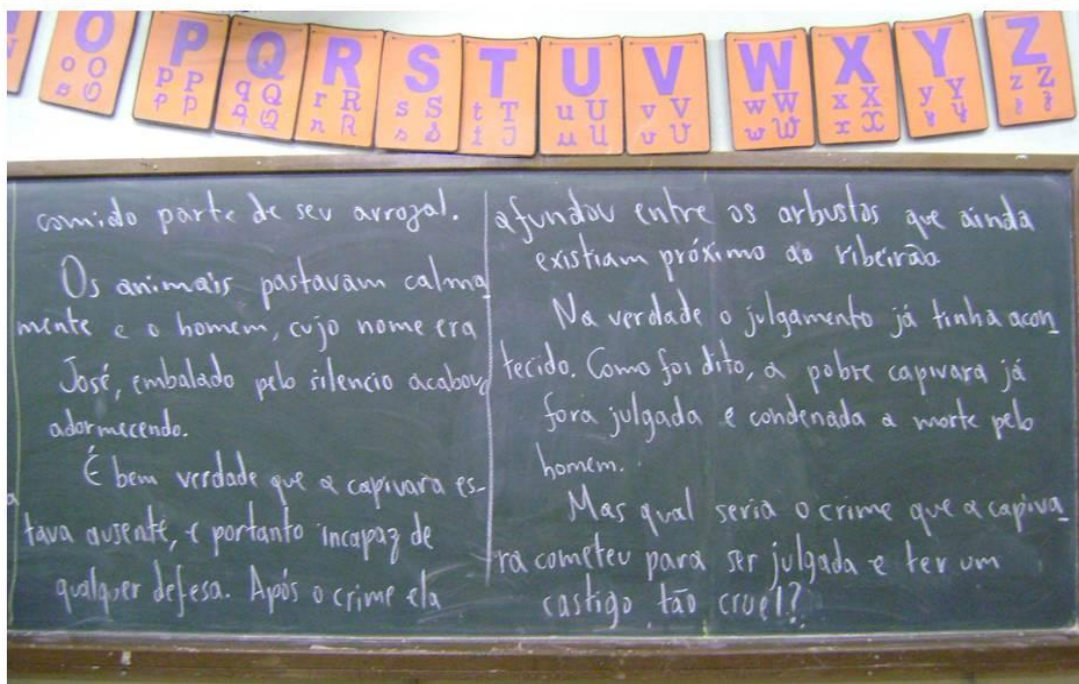 O
o O
o O
P
p P
p P
Q
q Q
q Q
R
r R
r R
S
s S
s S
T
t T
t T
U
u U
u U
V
v V
v V
W
w W
w W
X
x X
x X
Y
y Y
y Y
Z
z Z
z z
comido parte de seu arrozal.
Os animais pastavam calma
mente e o homem, cujo nome era
José, embalado pelo silencio acabou
adormecendo.
É bem verdade que a capivara es-
tava ausente, e portanto incapaz de
qualquer defesa. Após o crime ela
afundou entre os arbustos que ainda
existiam próximo ao ribeirão
Na verdade o julgamento já tinha acon
tecido. Como foi dito, a pobre capivara já
fora julgada e condenada a morte pelo
homem.
Mas qual seria o crime que a capiva
ra cometeu para ser julgada e ter um
castigo tão cruel!?